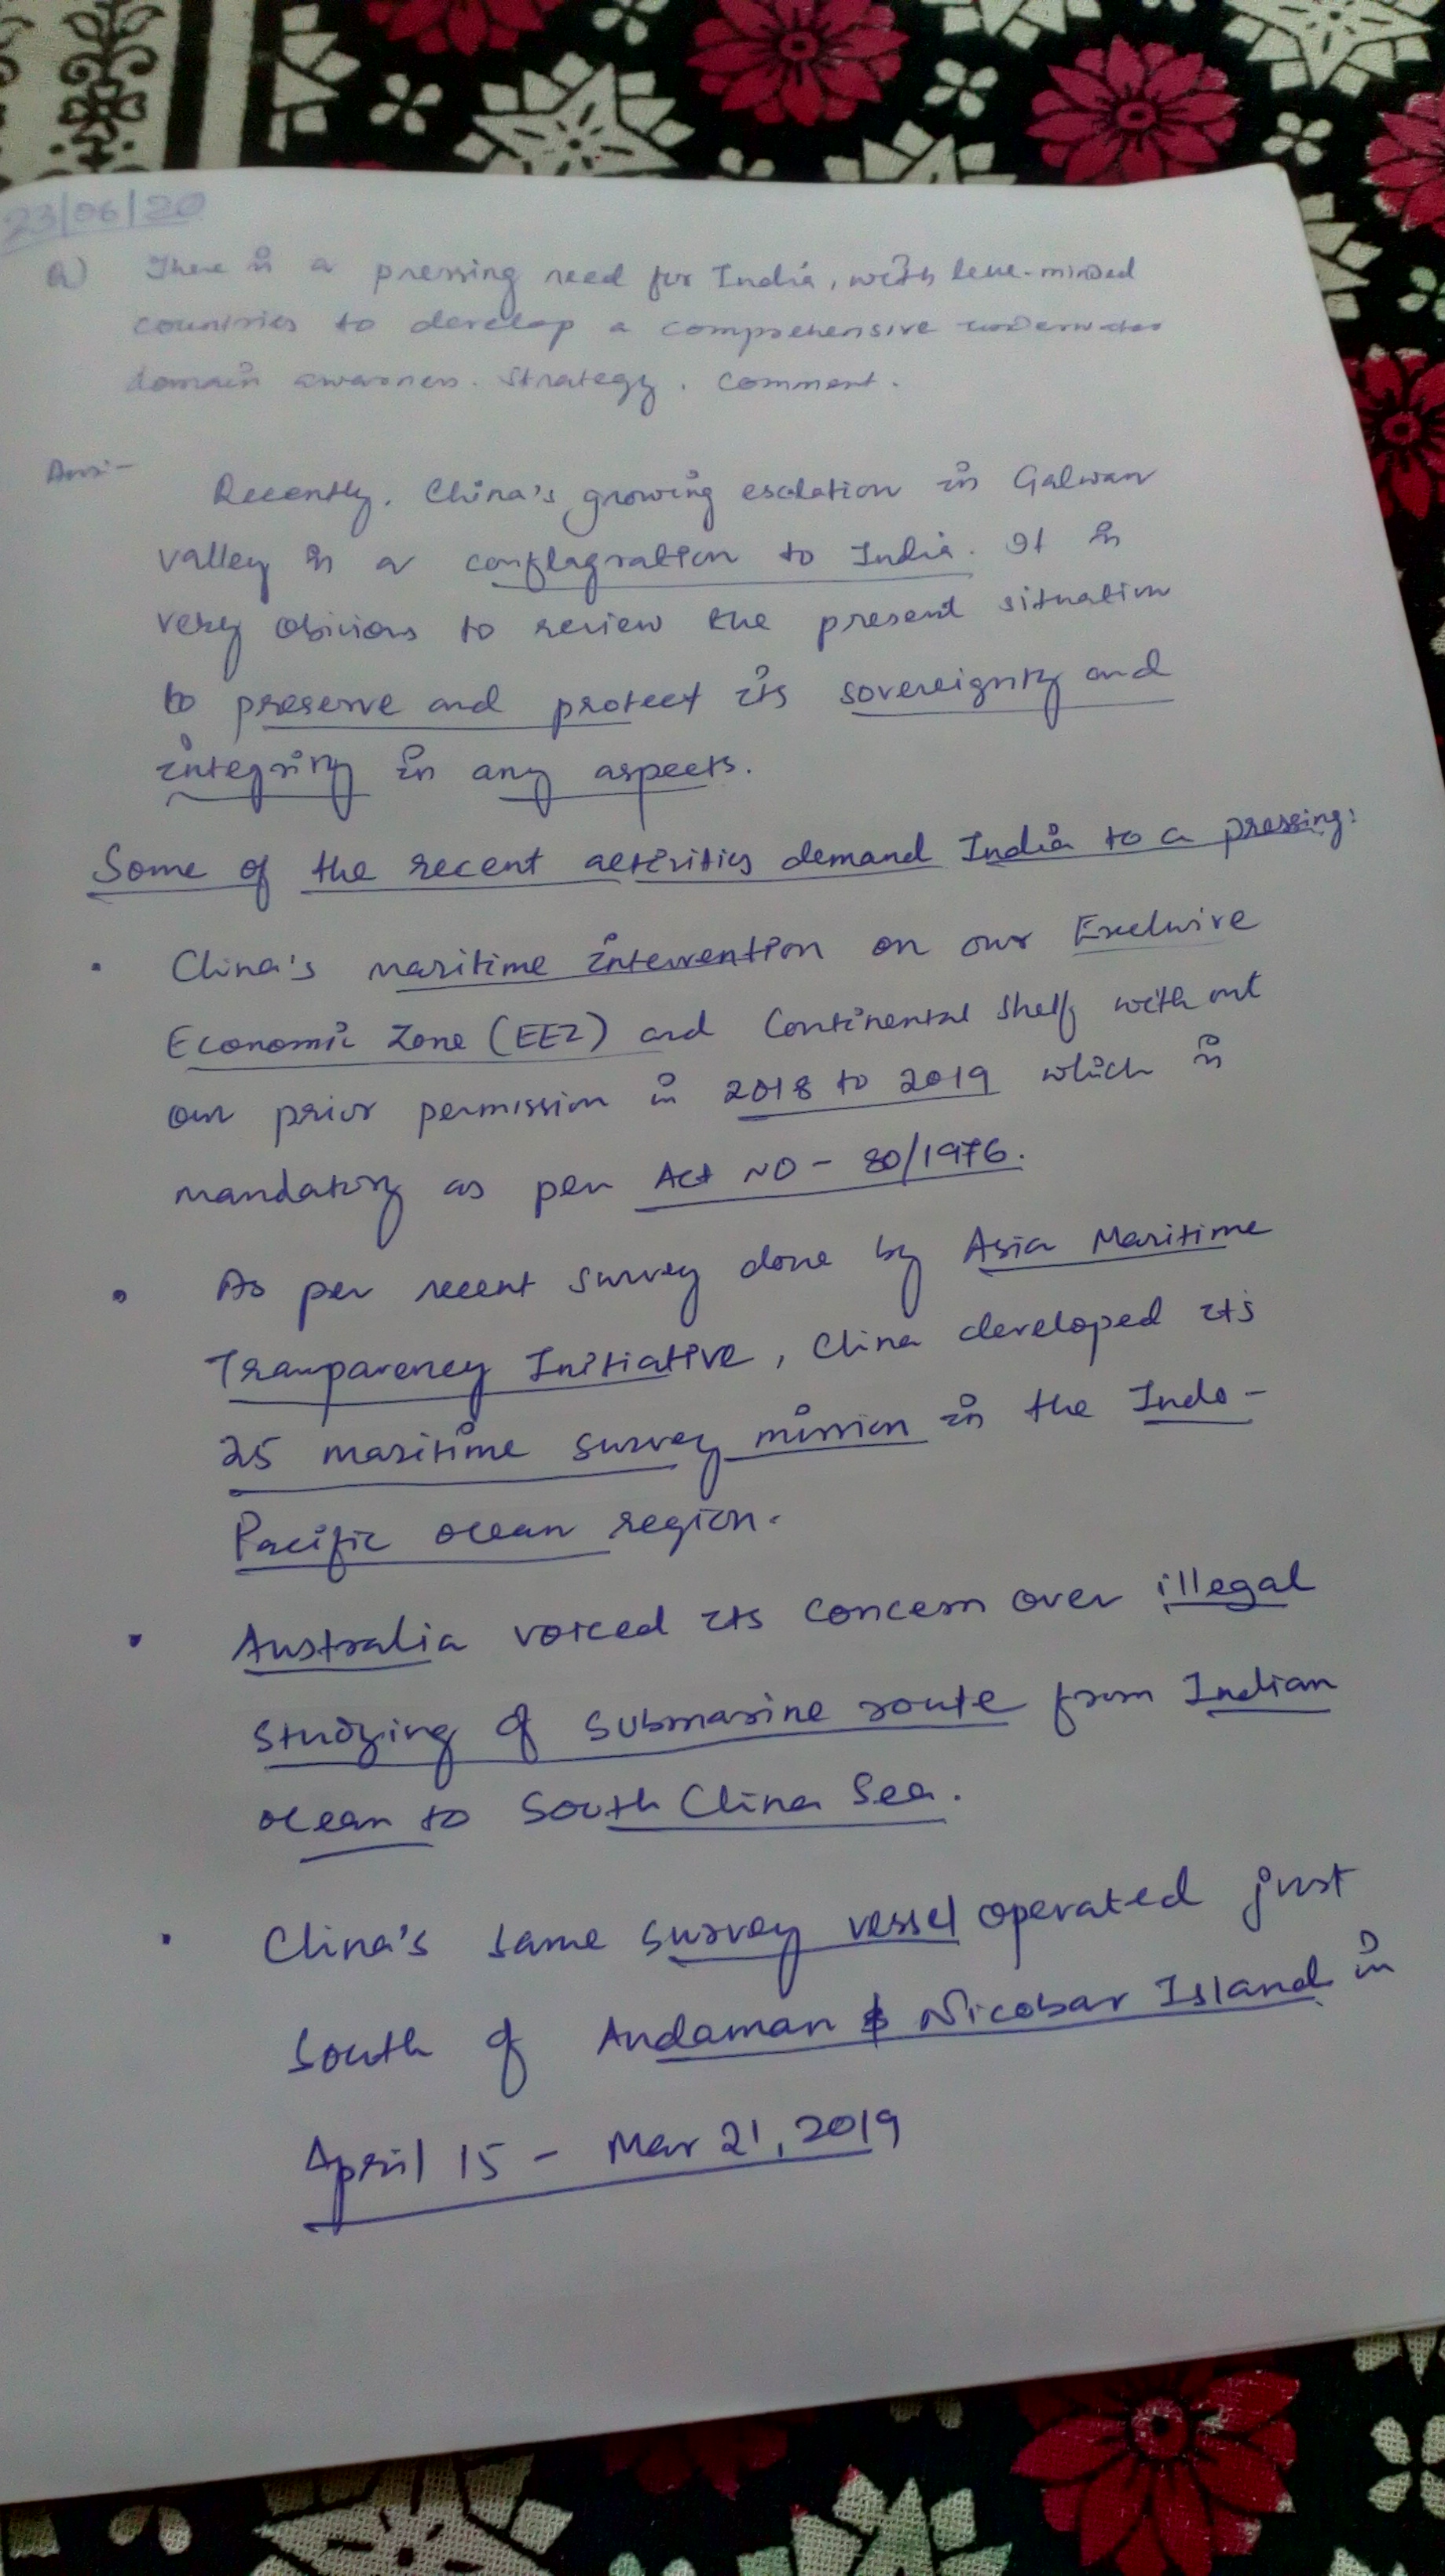 23/06/20
Q) There is a pressing need for India, with like-minded
countries to develop a comprehensive underwater
domain awareness. Strategy. Comment.
Ans:-
Recently, China's growing escalation in Galwan
valley is a conflagration to India. It is
very obivious to review the present situation
to preserve and protect its sovereignity and
integrity in any aspects.
Some of the recent activities demand India to a pressing:
• China's maritime intervention on our Exclusive
Economic Zone (EEZ) and Continental Shelf without
our prior permission in 2018 to 2019 which is
mandatory as per Act NO - 80/1976.
• As per recent survey done by Asia Maritime
Tranparency Initiative, China developed its
25 maritime survey mission in the Indo-
Pacific ocean region.
• Australia voiced its concern over illegal
studying of submarine route from Indian
ocean to South China Sea.
• China's same survey vessel operated just
South of Andaman & Nicobar Island in
April 15 - Mar 21, 2019